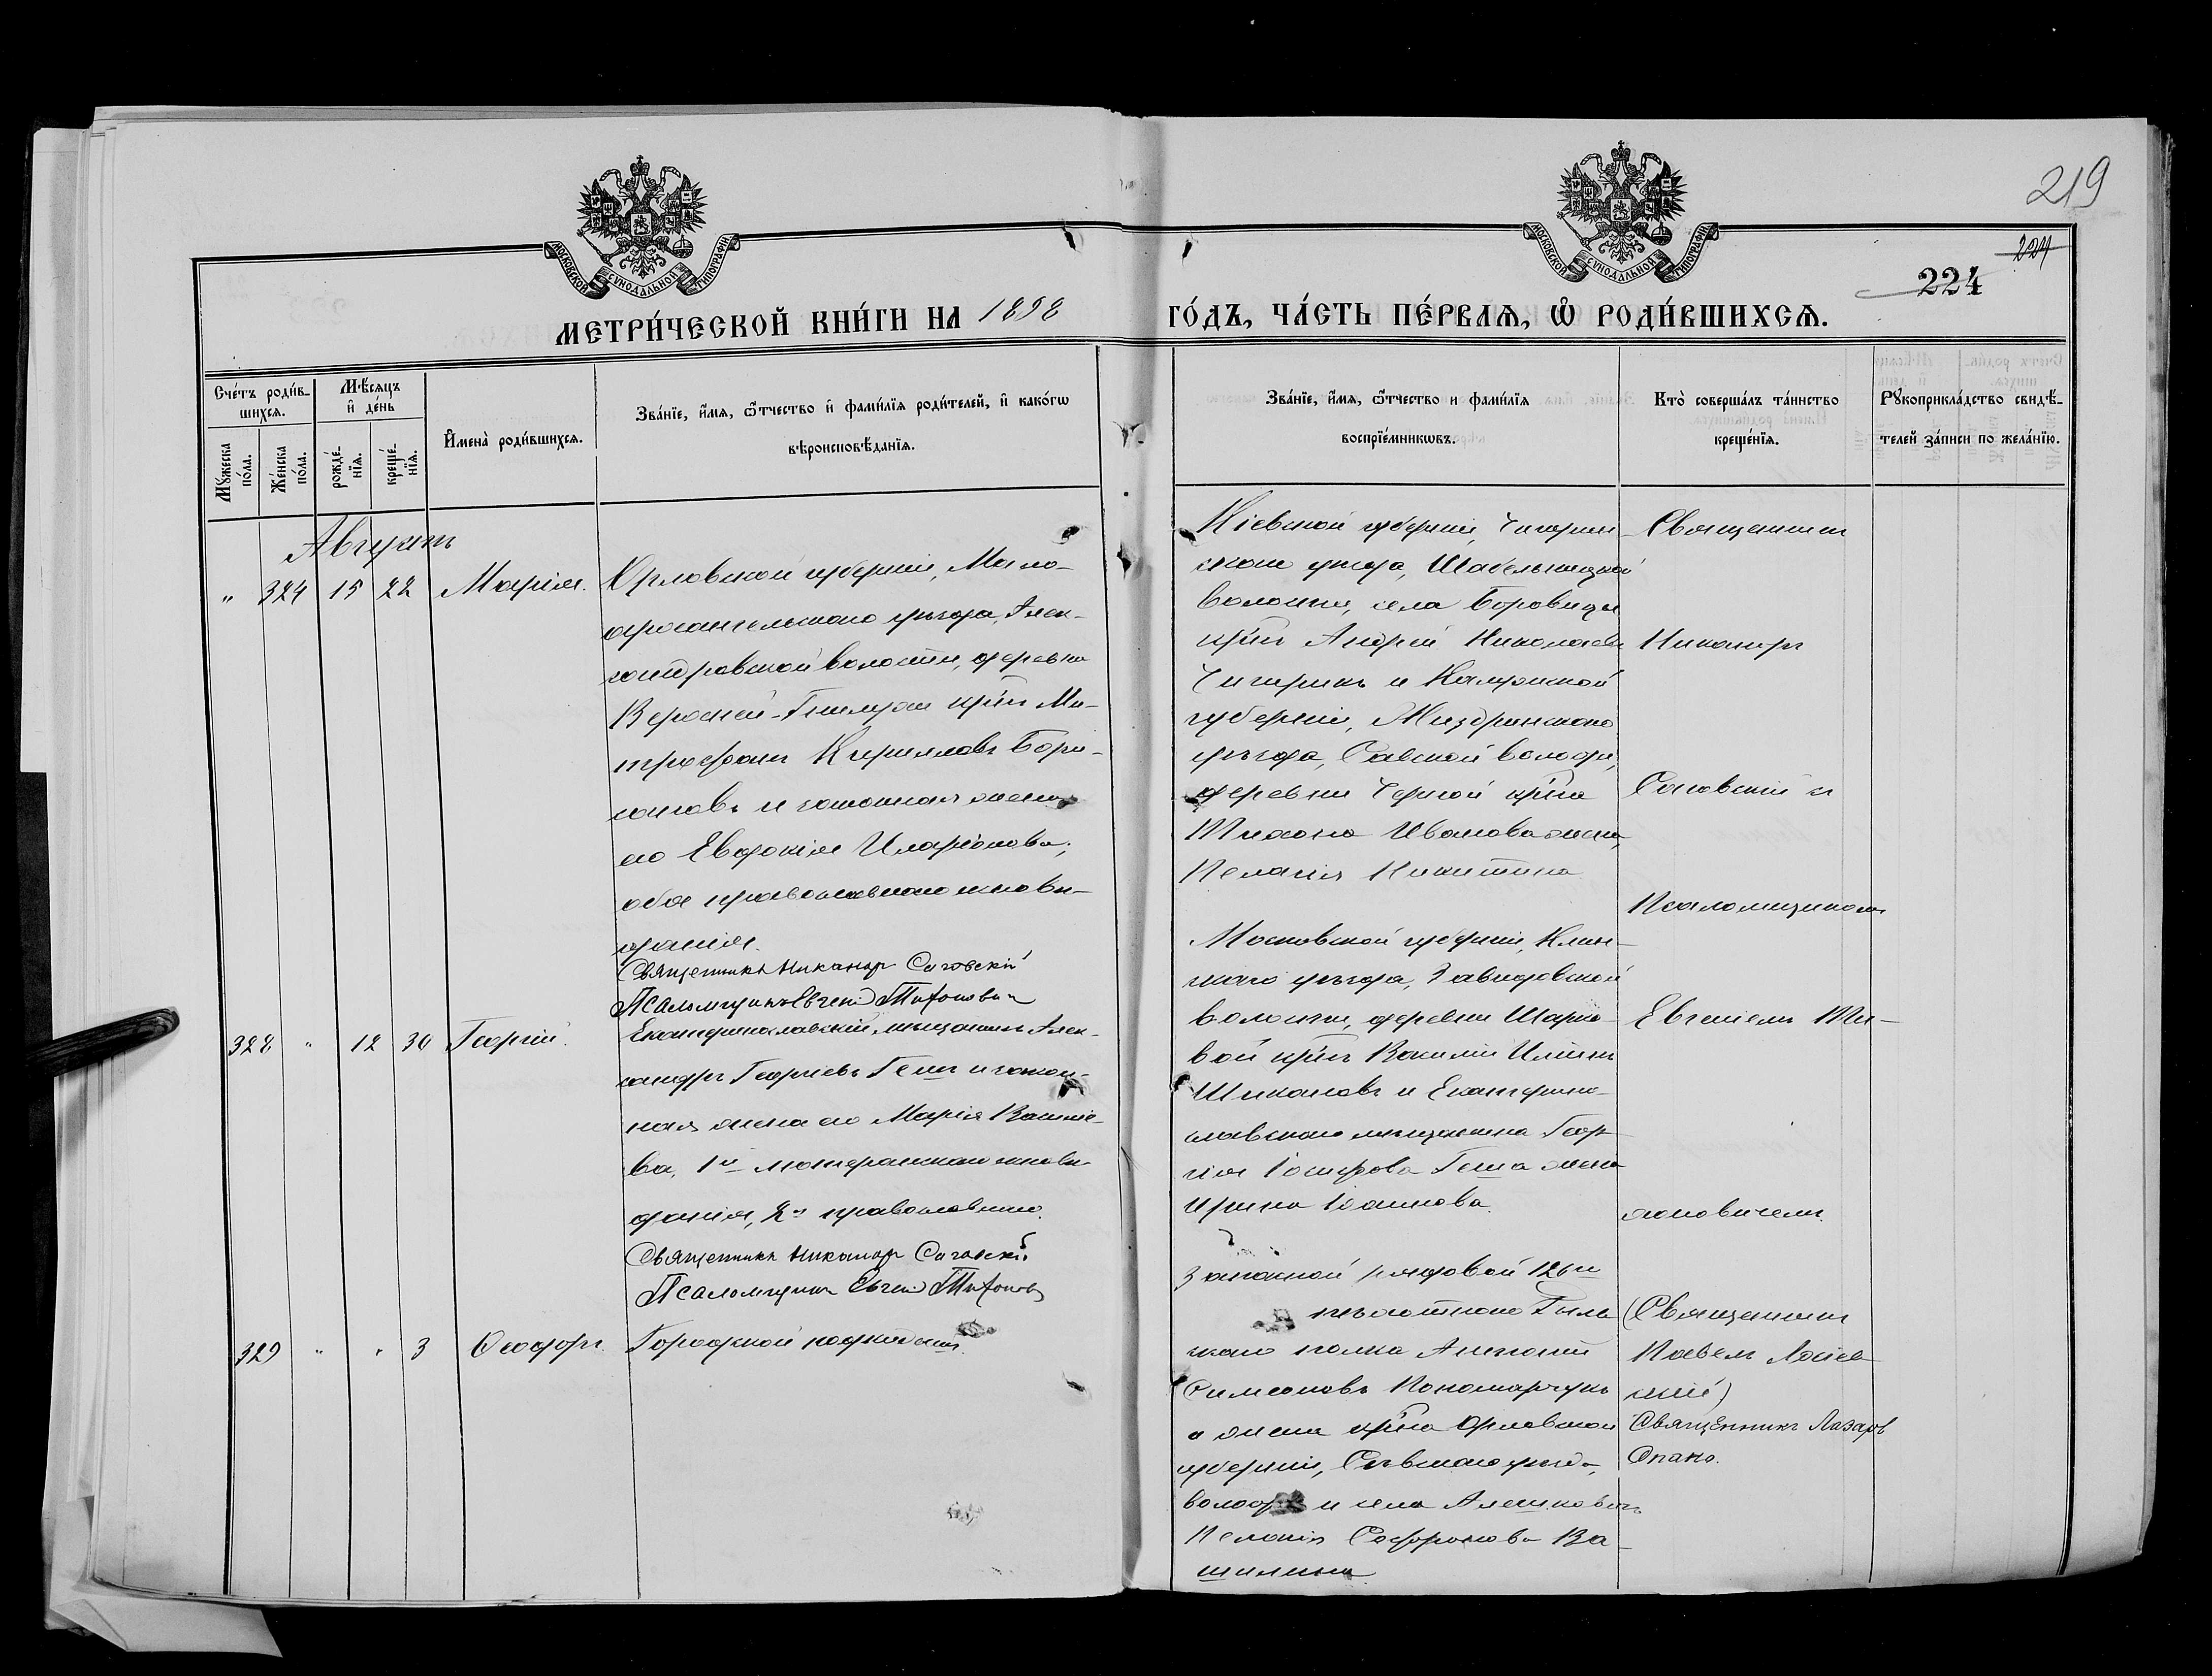 219
224
МОСКОВСКОЙ СУНОДАЛЬНОЙ ТИПОГРАФІИ.
МОСКОВСКОЙ СУНОДАЛЬНОЙ ТИПОГРАФІИ.
МЕТРИ́ЧЕСКОЙ КНИ́ГИ НА 1898
ГО́ДЪ, ЧА́СТЬ ПЕ́РВАЯ, Ѡ РОДИ́ВШИХСЯ.
Сче́тъ роди́в-
шихся.
Мѣ́сяцъ
и де́нь
Му́жеска
по́ла.
Же́нска
по́ла.
рожде́-
нїя.
креще́-
нїя.
И҆мена̀ роди́вшихся.
Зва́нїе, и҆́мя, ѻ҆́тчество и҆ фами́лїя роди́телей, и҆ како́гѡ
вѣроисповѣ́данїя.
Зва́нїе, и҆́мя, ѻ҆́тчество и фами́лїя
воспрїе́мникѡвъ.
Кто̀ соверша́лъ та́инство
креще́нїя.
Рꙋкоприкла́дство свидѣ́-
телей за́писи по жела́нїю.
Августъ
" 324 15 22 Марія.
Орловской губерніи, Мало-
архангельскаго уѣзда, Алек-
сандровской волости, деревни
крⷭ҇нъ Ми-
трофанъ Кирилловъ Бори-
совъ и законная жена
его Евдокія Иларіонова;
обое православнаго исповѣ-
данія.
Священникъ Никаноръ Саговскій
Псаломщикъ Евгеній Тихоновичъ
Кіевской губерніи, Чигирин-
скаго уѣзда, Шабельницкой
волости, села Боровицы
крⷭ҇нъ Андрей Николаевъ
Чигиринъ и Калужской
губерніи, Жиздринскаго
уѣзда, волости,
деревни Черной крⷭ҇на
Тихона Иванова жена,
Пелагія Никитина
Священникъ
Никаноръ
Саговскій съ
Псаломщикомъ
Евгеніемъ Ти-
хоновичемъ.
328 " 12 30 Георгій.
Екатеринославскій мѣщанинъ Алек-
сандръ Георгіевъ Гешъ и закон-
ная жена его Марія Василіе-
ва, 1й лютеранскаго исповѣ-
данія, 2я православнаго.
Священникъ Никаноръ Саговскій
Псаломщикъ Евгеній Тихоновъ
Московской губерніи, Клин-
скаго уѣзда, Завидовской
волости, деревни
крⷭ҇нъ Василій
и Екатерино-
славскаго мѣщанина Геор-
гія Іосифова Геша жена
Ирина Іоаннова.
329 " " 3 Ѳеодоръ.
Городской подкидышъ.
Запасной рядовой 126го
пѣхотнаго Рыль-
скаго полка Антоній
Симеоновъ Пономарчукъ
и жена крⷭ҇на Орловской
губерніи, Сѣвскаго уѣзда,
и села
Пелагія Софронова Ва-
шилина
(Священникъ
Павелъ
скій)
Священникъ Лазарь
Спано.